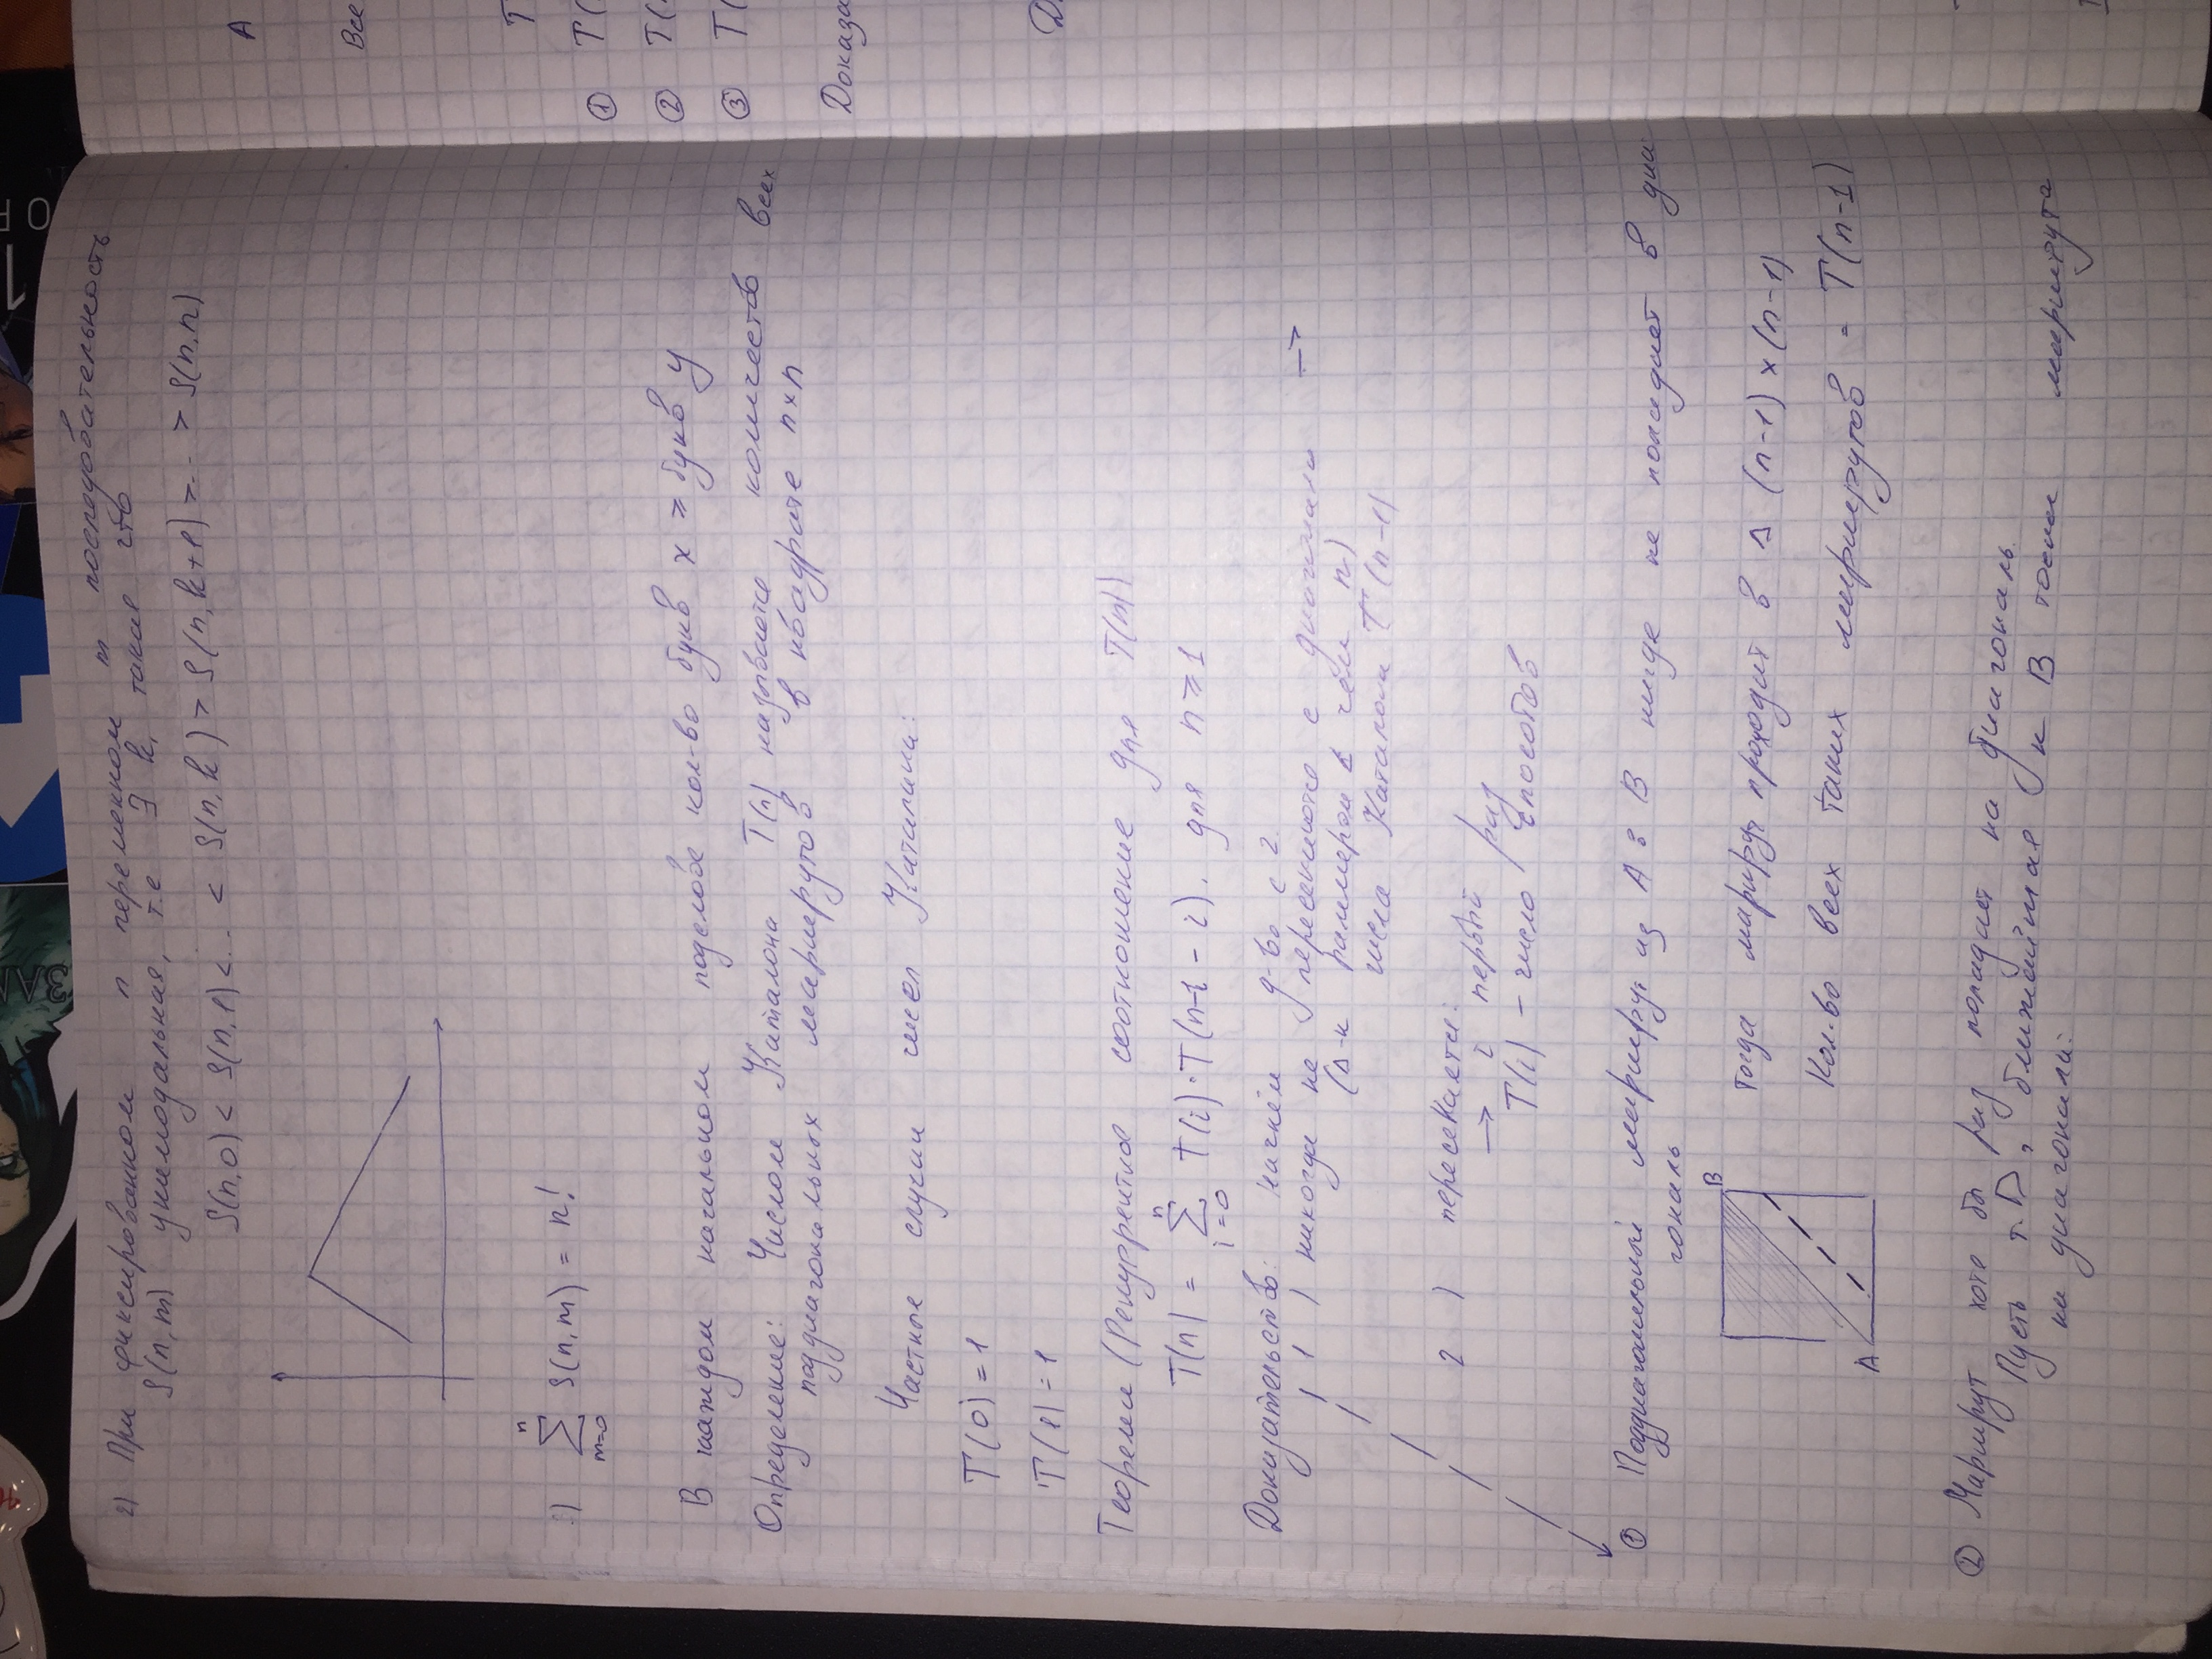 ЗАМ
1
2) При фиксированном n переменном m последовательность
S(n,m) унимодальная, т.е ∃ k, такая что
S(n,0) < S(n,1) < .. < S(n,k) > S(n,k+1) > .. > S(n,n)
) ∑ m=0 n S(n,m) = n!
В каждом начальном подслове кол-во букв x ⩾ букв y
Определение: Числом Каталона T(n) называется количество всех
поддиагональных маршрутов в квадрате n×n
Частные случаи чисел Каталана:
T(0) = 1
T(1) = 1
Теорема (Рекуррентное соотношение для T(n))
T(n) = ∑ i=0 n T(i)·T(n-1-i). для n ⩾ 1
Доказательство: начнём д-во с 2.
1) никогда не пересекается с диагональю →
(Δ-к размером < чем n)
числа Каталона T(n-1)
2) пересекается:
→ i первый раз
T(i) – число способов
① Поддиагональный маршрут из A в B нигде не попадает в диа-
гональ
B
A
тогда маршрут проходит в Δ (n-1)×(n-1)
Кол-во всех таких маршрутов = T(n-1)
② Маршрут хотя бы раз попадает на диагональ.
Пусть т. D, ближайшая к B точка маршрута
на диагонали:
A
Все
T
① T(
② T(
③ T(
Доказа
Д